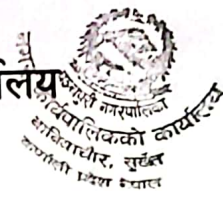 लिय
नगरपालिका
कार्यपालिकाको कार्यालय
बाबियाचौर, सुर्खेत
कर्णाली प्रदेश नेपाल